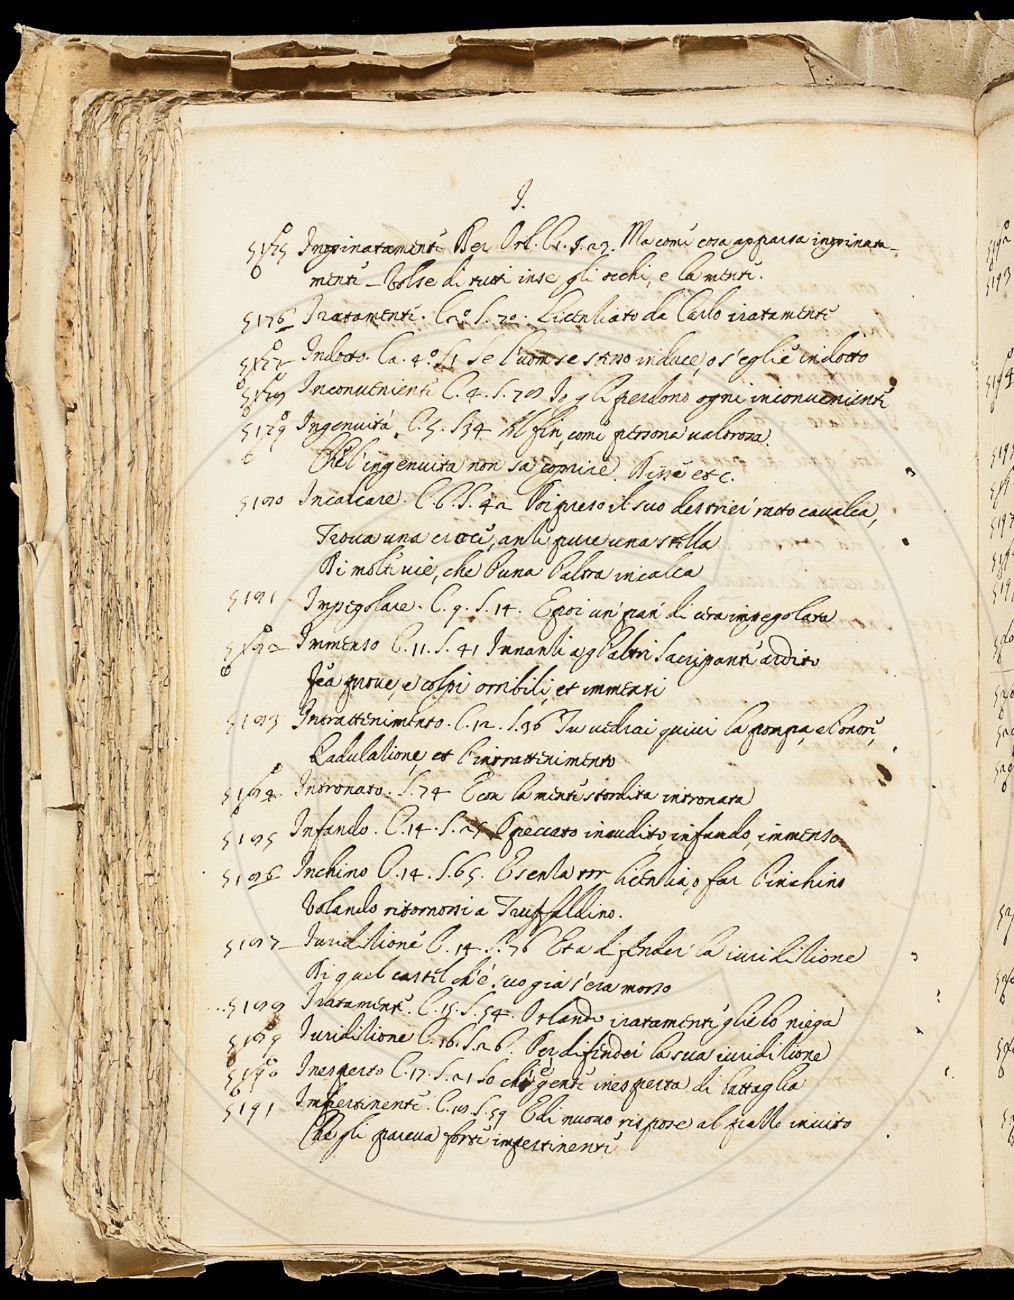 I.
5175 Inopinatamente Ber. Orl. Ca. S. 27. Ma come cosa apparsa inopinata-
mente _ Volse di tutti inse gli occhi, e la mente.
5176 Iratamente. Ca. S. 70. Licentiato da Carlo iratamente
5177 Indotto. Ca. 4. S. 1 Se l'uom se stesso induce, o s'egli è indotto
5178 Inconveniente C. 4. S. 78 Io gli perdono ogni inconveniente
5179 Ingenuità. C. 5. S. 34 Al fin, come persona valorosa
Che l'ingenuita non sa coprire, Disse etc.
5180 Incalcare. C. 6. S. 42 Poi preso il suo destrier ratto cavalca,
Trova una croce, anzi pure una stella
Di molte vie, che l'una l'altra incalca
5181 Impegolare. C. 9. S. 14. E poi un pan di cera impegolata
5182 Immenso C. 11. S. 41 Innanzi agl'altri Sacripante ardito
Fea prove, e colpi orribili, et immensi
5183 Intrattenimento. C. 12. S. 36 Tu vedrai quivi la pompa, e l'onore,
L'adulatione, et l'intrattenimento
5184 Intronato. S. 74 E con la mente stordita intronata
5185 Infando. C. 14. S. 25 O peccato inaudito, infando, immenso
5186 Inchino C. 14. S. 65. E senza tor licentia, o far l'inchino
Volando ritornossi a Truffaldino.
5187 Iuriditione C. 14. S. 76 Et a difender la iuriditione
Di quel castel ch'è suo già s'era mosso
5188 Iratamente. C. 15. S. 54. Orlando iratamente glielo niega
5189 Iuriditione C. 16. S. 26. Per difender la sua iuriditione
5190 Inesperto C. 17. S. 21 So ch'è gente inesperta di battaglia
5191 Impertinente. C. 18. S. 59 E di nuovo rispose al fiallo invito
Che gli pareva forte impertinente